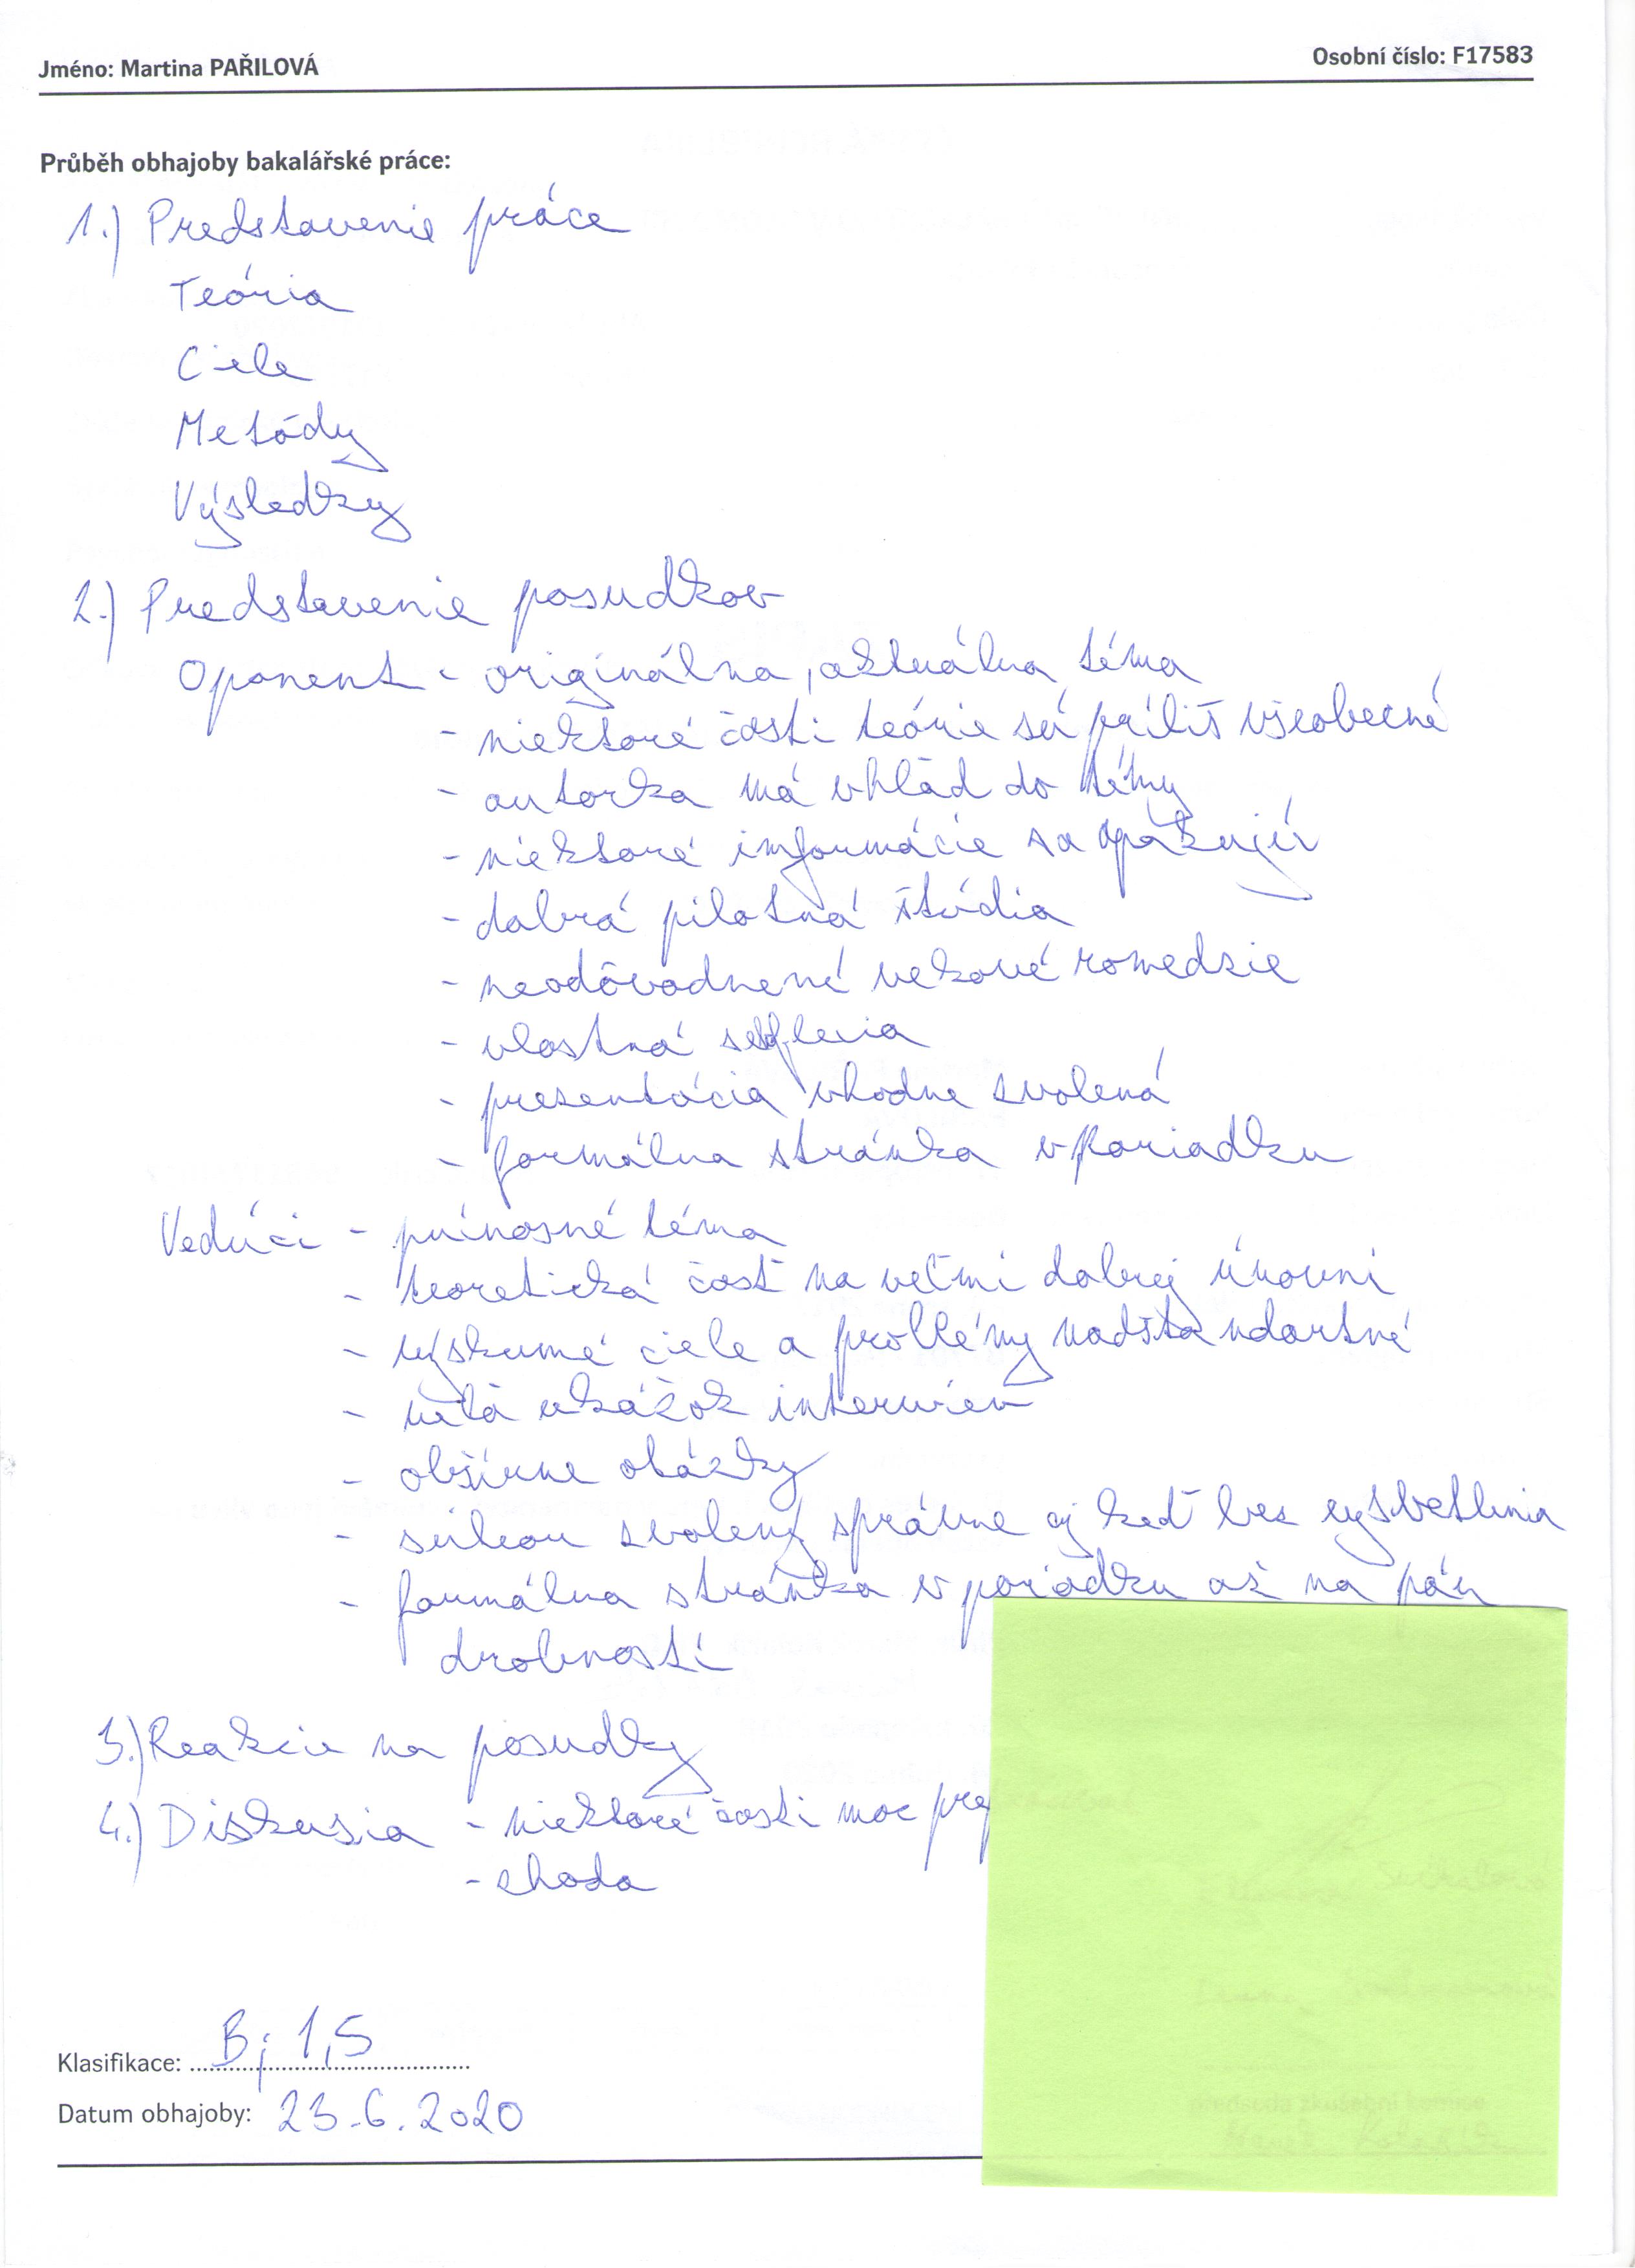 Jméno: Martina PAŘILOVÁ
Osobní číslo: F17583
Průběh obhajoby bakalářské práce:
1.) Predstavenie práce
Teória
Ciele
Metódy
Výsledky
2.) Predstavenie posudkov
Oponent - originálna, aktuálna téma
- niektoré časti teórie sú príliš všeobecné
- autorka má vhľad do témy
- niektoré informácie sa opakujú
- dobrá pilotná štúdia
- neodôvodnené vekové romedzie
- vlastná
- prezentácia vhodne zvolená
- formálna stránka v poriadku
Vedúci - prínosné téma
- teoretická časť na veľmi dobrej úrovni
- výskumné ciele a problémy nadštandartné
- ukážok interview
- obšírne otázky
- súbor zvolený správne aj keď bez vysvetlenia
- formálna stránka v poriadku až na pár
drobností
3.) Reakcie na posudky
4.) Diskusia - niektoré časti moc
- zhoda
Klasifikace: B; 1,5
Datum obhajoby: 23.6.2020